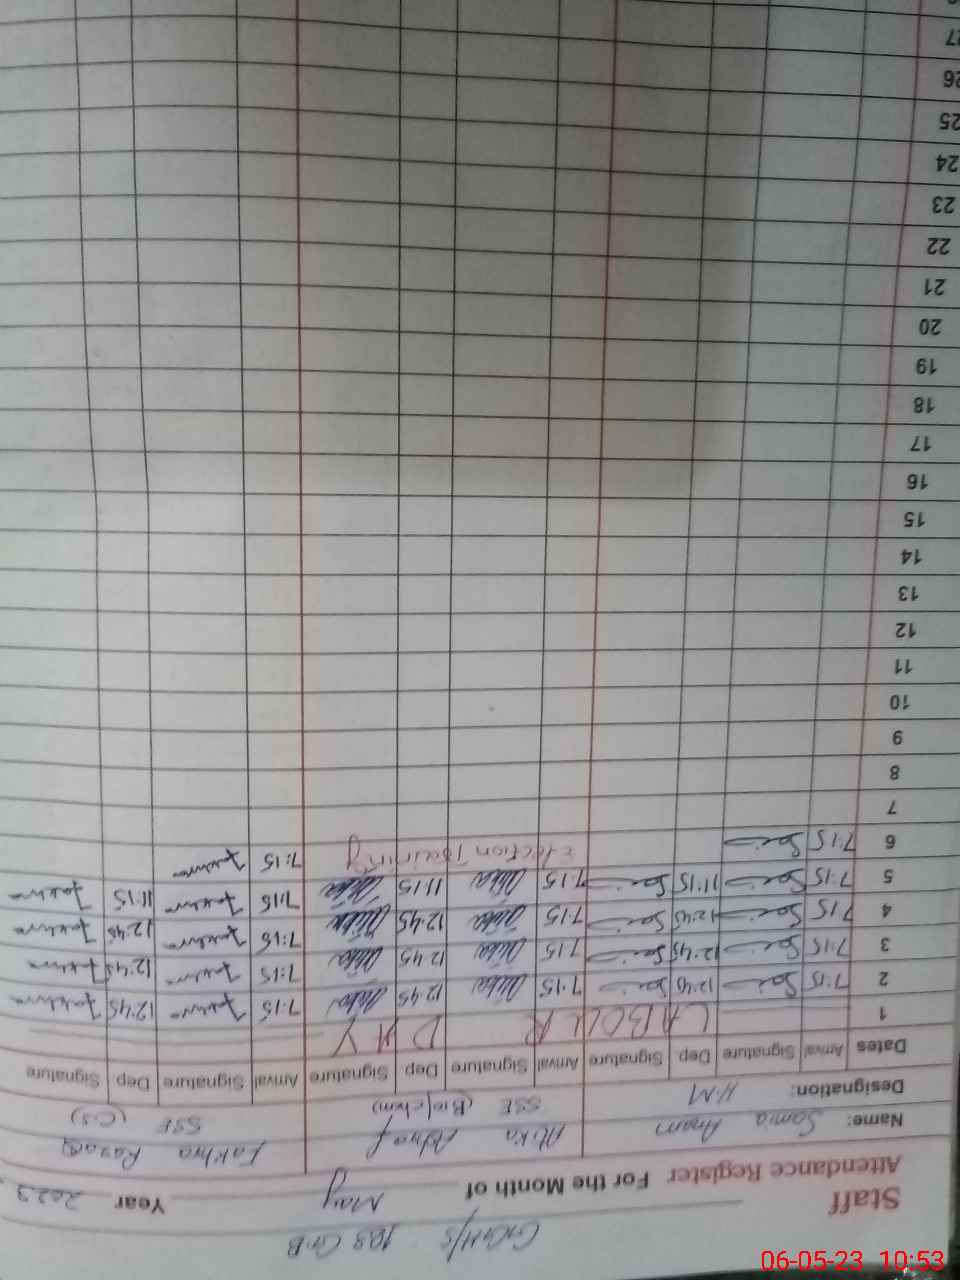 GGH/S 103 G.B
Staff
Attendance Register For the Month of May Year 2023
Name: Samia Anam Atika Ashraf Fakhra Razaq
Designation: H.M SSE (Bio/chem) SSE (C.S)
Dates Arrival Signature Dep Signature Arrival Signature Dep Signature Arrival Signature Dep Signature
1 LABOUR DAY
2 7:15 12:45 7:15 Atika 12:45 Atika 7:15 Fakhra 12:45 Fakhra
3 7:15 12:45 7:15 Atika 12:45 Atika 7:15 Fakhra 12:45 Fakhra
4 7:15 12:45 7:15 Atika 12:45 Atika 7:15 Fakhra 12:45 Fakhra
5 7:15 11:15 7:15 Atika 11:15 Atika 7:15 Fakhra 11:15 Fakhra
6 7:15 Election Training 7:15 Fakhra
7
8
9
10
11
12
13
14
15
16
17
18
19
20
21
22
23
24
25
26
27
06-05-23 10:53